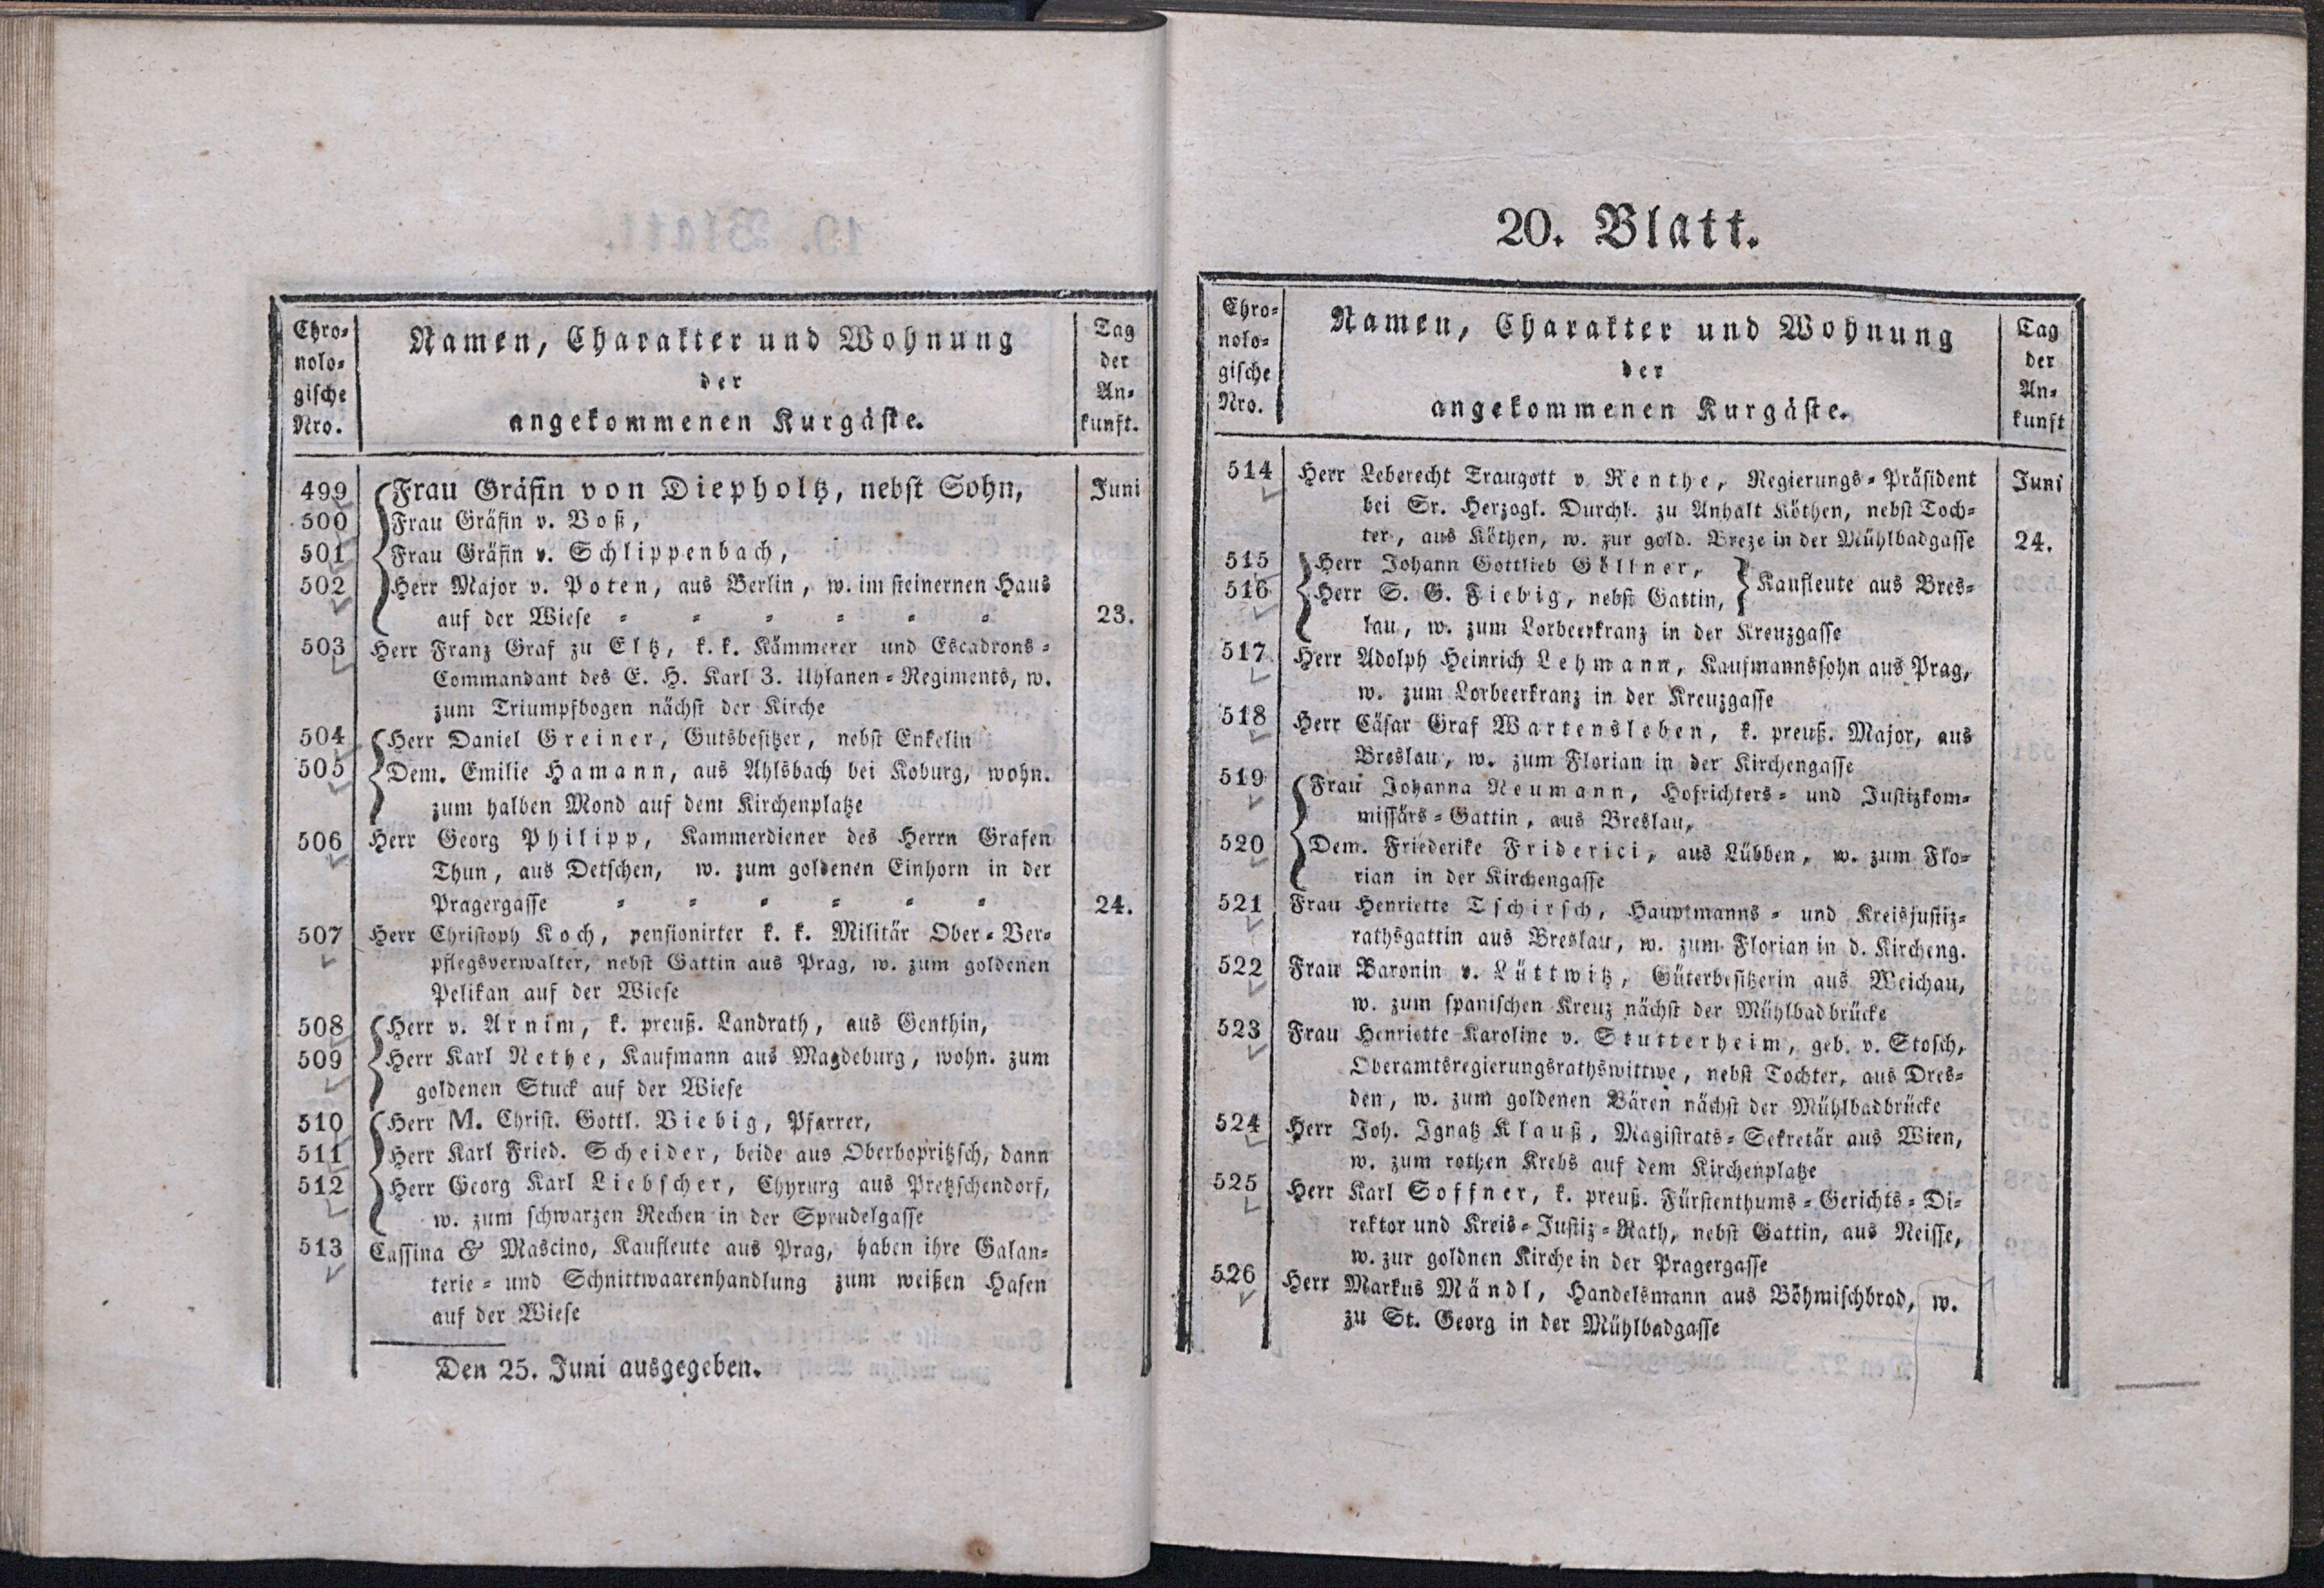 Chro-
nolo-
gische
Nro.
Namen, Charakter und Wohnung
der
angekommenen Kurgäste.
Tag
der
An-
kunft.
499 Frau Gräfin von Diepholtz, nebst Sohn, Juni
500 Frau Gräfin v. Voß,
501 Frau Gräfin v. Schlippenbach,
502 Herr Major v. Poten, aus Berlin, w. im steinernen Haus
auf der Wiese - - - - - - 23.
503 Herr Franz Graf zu Eltz, k. k. Kämmerer und Escadrons-
Commandant des E. H. Karl 3. Uhlanen-Regiments, w.
zum Triumpfbogen nächst der Kirche
504 Herr Daniel Greiner, Gutsbesitzer, nebst Enkelin
505 Dem. Emilie Hamann, aus Ahlsbach bei Koburg, wohn.
zum halben Mond auf dem Kirchenplatze
506 Herr Georg Philipp, Kammerdiener des Herrn Grafen
Thun, aus Detschen, w. zum goldenen Einhorn in der
Pragergasse - - - - - - 24.
507 Herr Christoph Koch, pensionirter k. k. Militär Ober-Ver-
pflegsverwalter, nebst Gattin aus Prag, w. zum goldenen
Pelikan auf der Wiese
508 Herr v. Arnim, k. preuß. Landrath, aus Genthin,
509 Herr Karl Nethe, Kaufmann aus Magdeburg, wohn. zum
goldenen Stuck auf der Wiese
510 Herr M. Christ. Gottl. Viebig, Pfarrer,
511 Herr Karl Fried. Scheider, beide aus Oberbopritzsch, dann
512 Herr Georg Karl Liebscher, Chyrurg aus Pretzschendorf,
w. zum schwarzen Rechen in der Sprudelgasse
513 Cassina & Mascino, Kaufleute aus Prag, haben ihre Galan-
terie- und Schnittwaarenhandlung zum weißen Hasen
auf der Wiese
Den 25. Juni ausgegeben.
20. Blatt.
Chro-
nolo-
gische
Nro.
Namen, Charakter und Wohnung
der
angekommenen Kurgäste.
Tag
der
An-
kunft
514 Herr Leberecht Traugott v. Renthe, Regierungs-Präsident Juni
bei Sr. Herzogl. Durchl. zu Anhalt Köthen, nebst Toch-
ter, aus Köthen, w. zur gold. Breze in der Mühlbadgasse 24.
515 Herr Johann Gottlieb Göllner,
516 Herr S. G. Fiebig, nebst Gattin, Kaufleute aus Bres-
lau, w. zum Lorbeerkranz in der Kreuzgasse
517 Herr Adolph Heinrich Lehmann, Kaufmannssohn aus Prag,
w. zum Lorbeerkranz in der Kreuzgasse
518 Herr Cäsar Graf Wartensleben, k. preuß. Major, aus
Breslau, w. zum Florian in der Kirchengasse
519 Frau Johanna Neumann, Hofrichters- und Justizkom-
missärs-Gattin, aus Breslau,
520 Dem. Friederike Friderici, aus Lübben, w. zum Flo-
rian in der Kirchengasse
521 Frau Henriette Tschirsch, Hauptmanns- und Kreisjustiz-
rathsgattin aus Breslau, w. zum Florian in d. Kircheng.
522 Frau Baronin v. Lüttwitz, Güterbesitzerin aus Weichau,
w. zum spanischen Kreuz nächst der Mühlbadbrücke
523 Frau Henriette Karoline v. Stutterheim, geb. v. Stosch,
Oberamtsregierungsrathswittwe, nebst Tochter, aus Dres-
den, w. zum goldenen Bären nächst der Mühlbadbrücke
524 Herr Joh. Ignatz Klauß, Magistrats-Sekretär aus Wien,
w. zum rothen Krebs auf dem Kirchenplatze
525 Herr Karl Soffner, k. preuß. Fürstenthums-Gerichts-Di-
rektor und Kreis-Justiz-Rath, nebst Gattin, aus Neisse,
w. zur goldnen Kirche in der Pragergasse
526 Herr Markus Mändl, Handelsmann aus Böhmischbrod, w.
zu St. Georg in der Mühlbadgasse